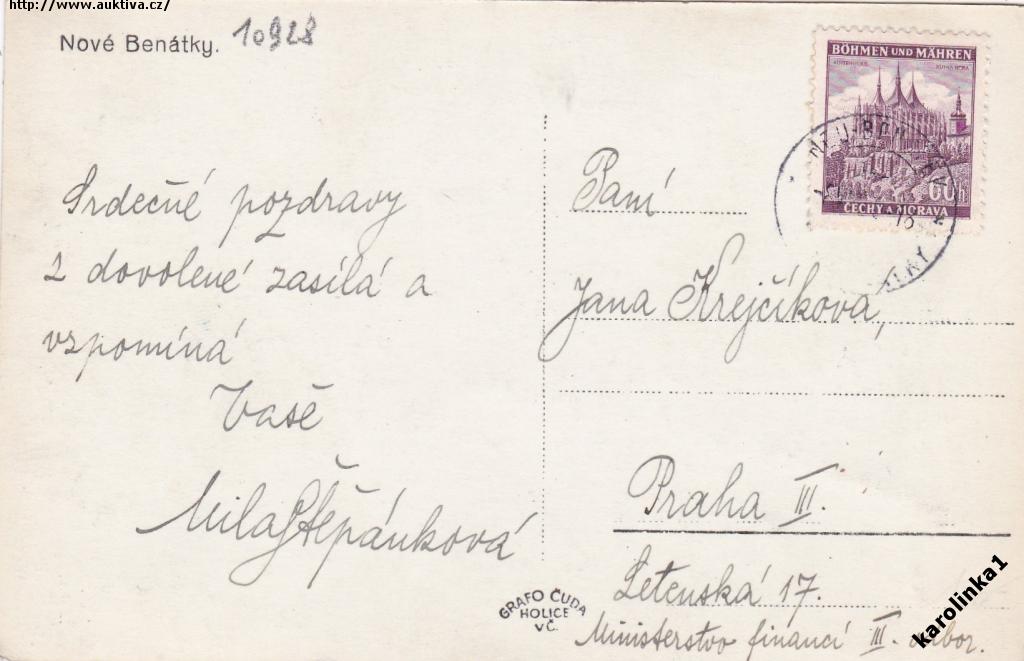 http://www.auktiva.cz/
Nové Benátky.
10928
BÖHMEN UND MÄHREN
60h
ČECHY A MORAVA
Srdečné pozdravy
z dovolené zasílá a
vzpomíná
Vaše
Mila Štěpánková
Paní
Jana Krejčíková,
Praha III.
Letenská 17.
Ministerstvo financí III. odbor.
GRAFO ČUDA
HOLICE
VČ.
karolinka1